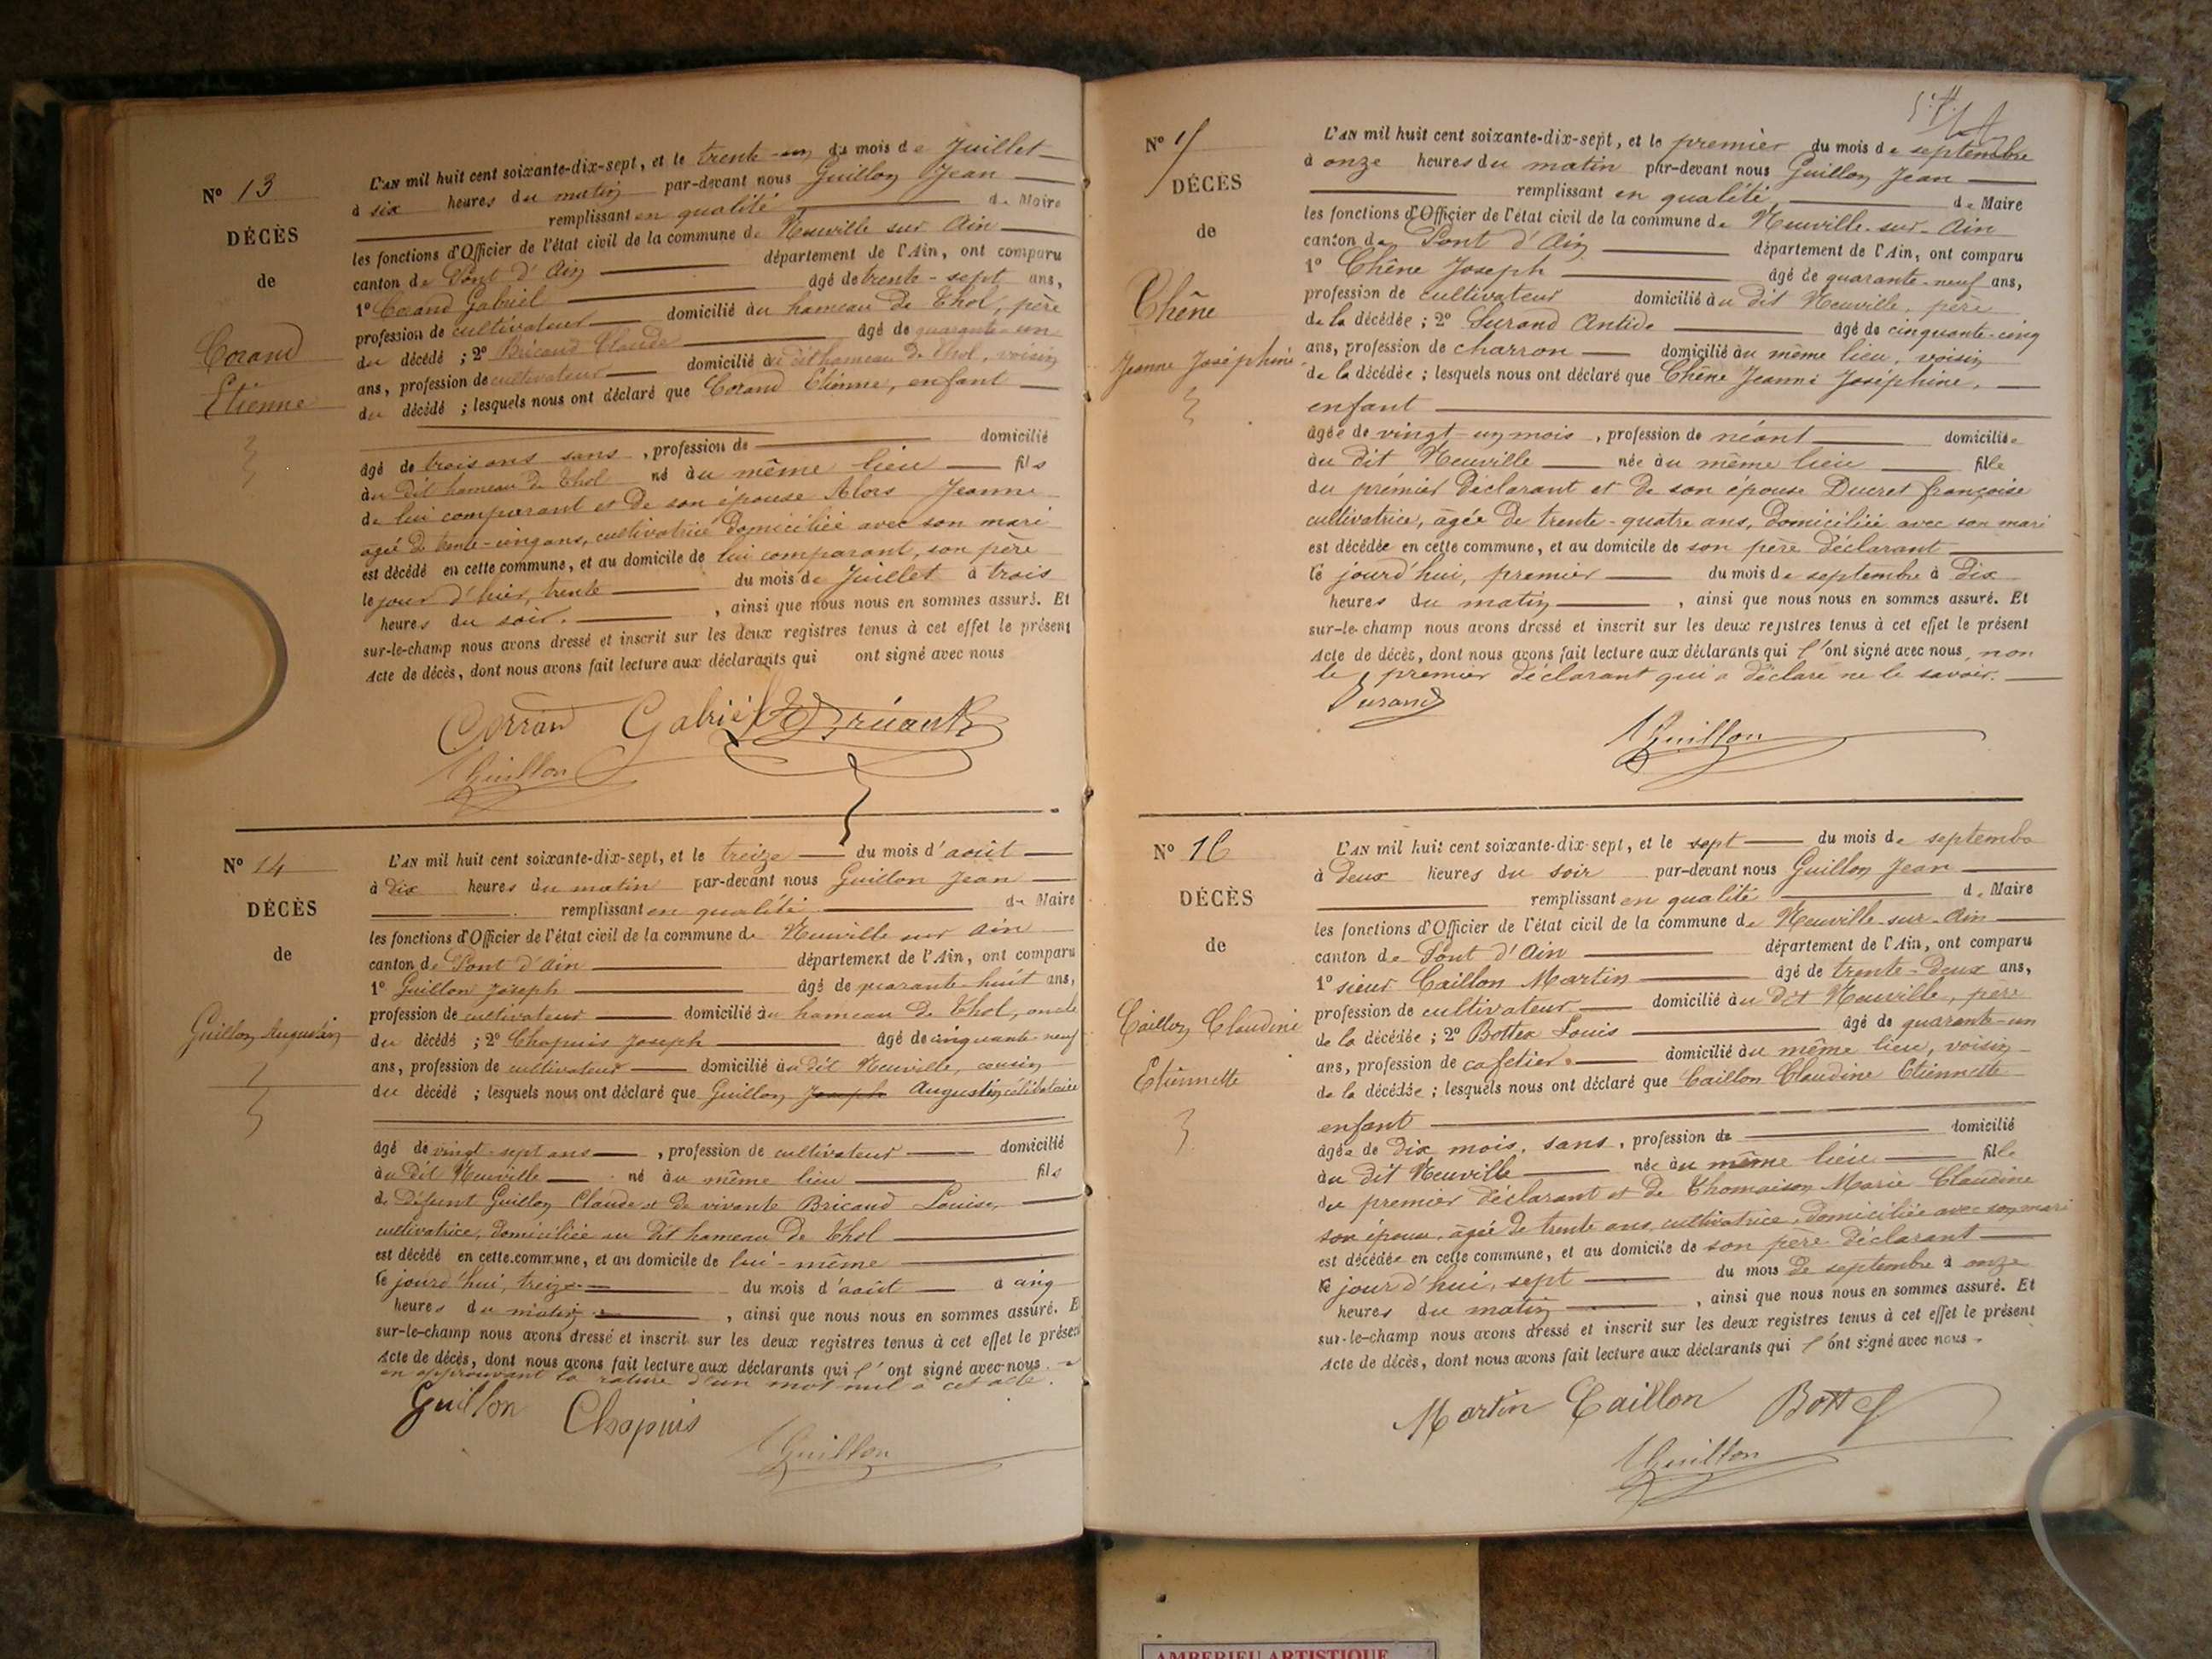 N° 13
DÉCÈS
de
Corand
Etienne
L'AN mil huit cent soixante-dix-sept, et le trente-un du mois de Juillet
à six heures du matin par-devant nous Guillon Jean
remplissant en qualité de Maire
les fonctions d'Officier de l'état civil de la commune de Neuville sur Ain
canton de Pont d'Ain département de l'Ain, ont comparu
1° Corand Gabriel âgé de trente-sept ans,
profession de cultivateur domicilié au hameau de Thol, père
du décédé ; 2° Bricaud Claude âgé de quarante-un
ans, profession de cultivateur domicilié au dit hameau de Thol, voisin
du décédé ; lesquels nous ont déclaré que Corand Etienne, enfant
âgé de trois ans sans , profession de domicilié
au dit hameau de Thol né au même lieu fils
de lui comparant et de son épouse Alois Jeanne
âgée de trente-cinq ans, cultivatrice domiciliée avec son mari
est décédé en cette commune, et au domicile de lui comparant, son père
le jour d'hier, trente du mois de Juillet à trois
heures du soir. , ainsi que nous nous en sommes assuré. Et
sur-le-champ nous avons dressé et inscrit sur les deux registres tenus à cet effet le présent
Acte de décès, dont nous avons fait lecture aux déclarants qui ont signé avec nous
Corran Gabriel
Guillon
N° 14
DÉCÈS
de
Guillon Augustin
L'AN mil huit cent soixante-dix-sept, et le treize du mois d'août
à dix heures du matin par-devant nous Guillon Jean
remplissant en qualité de Maire
les fonctions d'Officier de l'état civil de la commune de Neuville sur Ain
canton de Pont d'Ain département de l'Ain, ont comparu
1° Guillon Joseph âgé de quarante-huit ans,
profession de cultivateur domicilié au hameau de Thol, oncle
du décédé ; 2° Chapuis Joseph âgé de cinquante-neuf
ans, profession de cultivateur domicilié au dit Neuville, cousin
du décédé ; lesquels nous ont déclaré que Guillon Joseph Augustin célibataire
âgé de vingt-sept ans , profession de cultivateur domicilié
au dit Neuville né au même lieu fils
de défunt Guillon Claude et de vivante Bricaud Louise,
cultivatrice, domiciliée au dit hameau de Thol
est décédé en cette commune, et au domicile de lui-même
le jourd'hui, treize du mois d'août à cinq
heures du matin , ainsi que nous nous en sommes assuré. E
sur-le-champ nous avons dressé et inscrit sur les deux registres tenus à cet effet le présen
Acte de décès, dont nous avons fait lecture aux déclarants qui l'ont signé avec nous
en approuvant la rature d'un mot nul à cet acte.
Guillon Chapuis
Guillon
N° 15
DÉCÈS
de
Chêne
Jeanne Joséphine
L'AN mil huit cent soixante-dix-sept, et le premier du mois de septembre
à onze heures du matin par-devant nous Guillon Jean
remplissant en qualité de Maire
les fonctions d'Officier de l'état civil de la commune de Neuville-sur-Ain
canton de Pont d'Ain département de l'Ain, ont comparu
1° Chêne Joseph âgé de quarante-neuf ans,
profession de cultivateur domicilié au dit Neuville, père
de la décédée ; 2° Durand Antide âgé de cinquante-cinq
ans, profession de charron domicilié au même lieu, voisin
de la décédée ; lesquels nous ont déclaré que Chêne Jeanne Joséphine,
enfant
âgée de vingt-un mois , profession de néant domiciliée
au dit Neuville née au même lieu fille
du premier déclarant et de son épouse Ducret françoise
cultivatrice, âgée de trente-quatre ans, domiciliée avec son mari
est décédée en cette commune, et au domicile de son père déclarant
le jourd'hui, premier du mois de septembre à dix
heures du matin , ainsi que nous nous en sommes assuré. Et
sur-le-champ nous avons dressé et inscrit sur les deux registres tenus à cet effet le présent
Acte de décès, dont nous avons fait lecture aux déclarants qui l'ont signé avec nous, non
le premier déclarant qui a déclaré ne le savoir.
Durand
Guillon
N° 16
DÉCÈS
de
Caillon Claudine
Etiennette
L'AN mil huit cent soixante-dix-sept, et le sept du mois de septembre
à deux heures du soir par-devant nous Guillon Jean
remplissant en qualité de Maire
les fonctions d'Officier de l'état civil de la commune de Neuville-sur-Ain
canton de Pont d'Ain département de l'Ain, ont comparu
1° sieur Caillon Martin âgé de trente-deux ans,
profession de cultivateur domicilié au dit Neuville, père
de la décédée ; 2° Bottex Louis âgé de quarante-un
ans, profession de cafetier domicilié au même lieu, voisin
de la décédée ; lesquels nous ont déclaré que Caillon Claudine Etiennette
enfant
âgée de dix mois, sans , profession de domicilié
au dit Neuville née au même lieu fille
du premier déclarant et de Thomaison Marie Claudine
son épouse, âgée de trente ans, cultivatrice, domiciliée avec son mari
est décédée en cette commune, et au domicile de son père déclarant
le jourd'hui, sept du mois de septembre à onze
heures du matin , ainsi que nous nous en sommes assuré. Et
sur-le-champ nous avons dressé et inscrit sur les deux registres tenus à cet effet le présent
Acte de décès, dont nous avons fait lecture aux déclarants qui l'ont signé avec nous
Martin Caillon Bottex
Guillon
AMBERIEU ARTISTIQUE